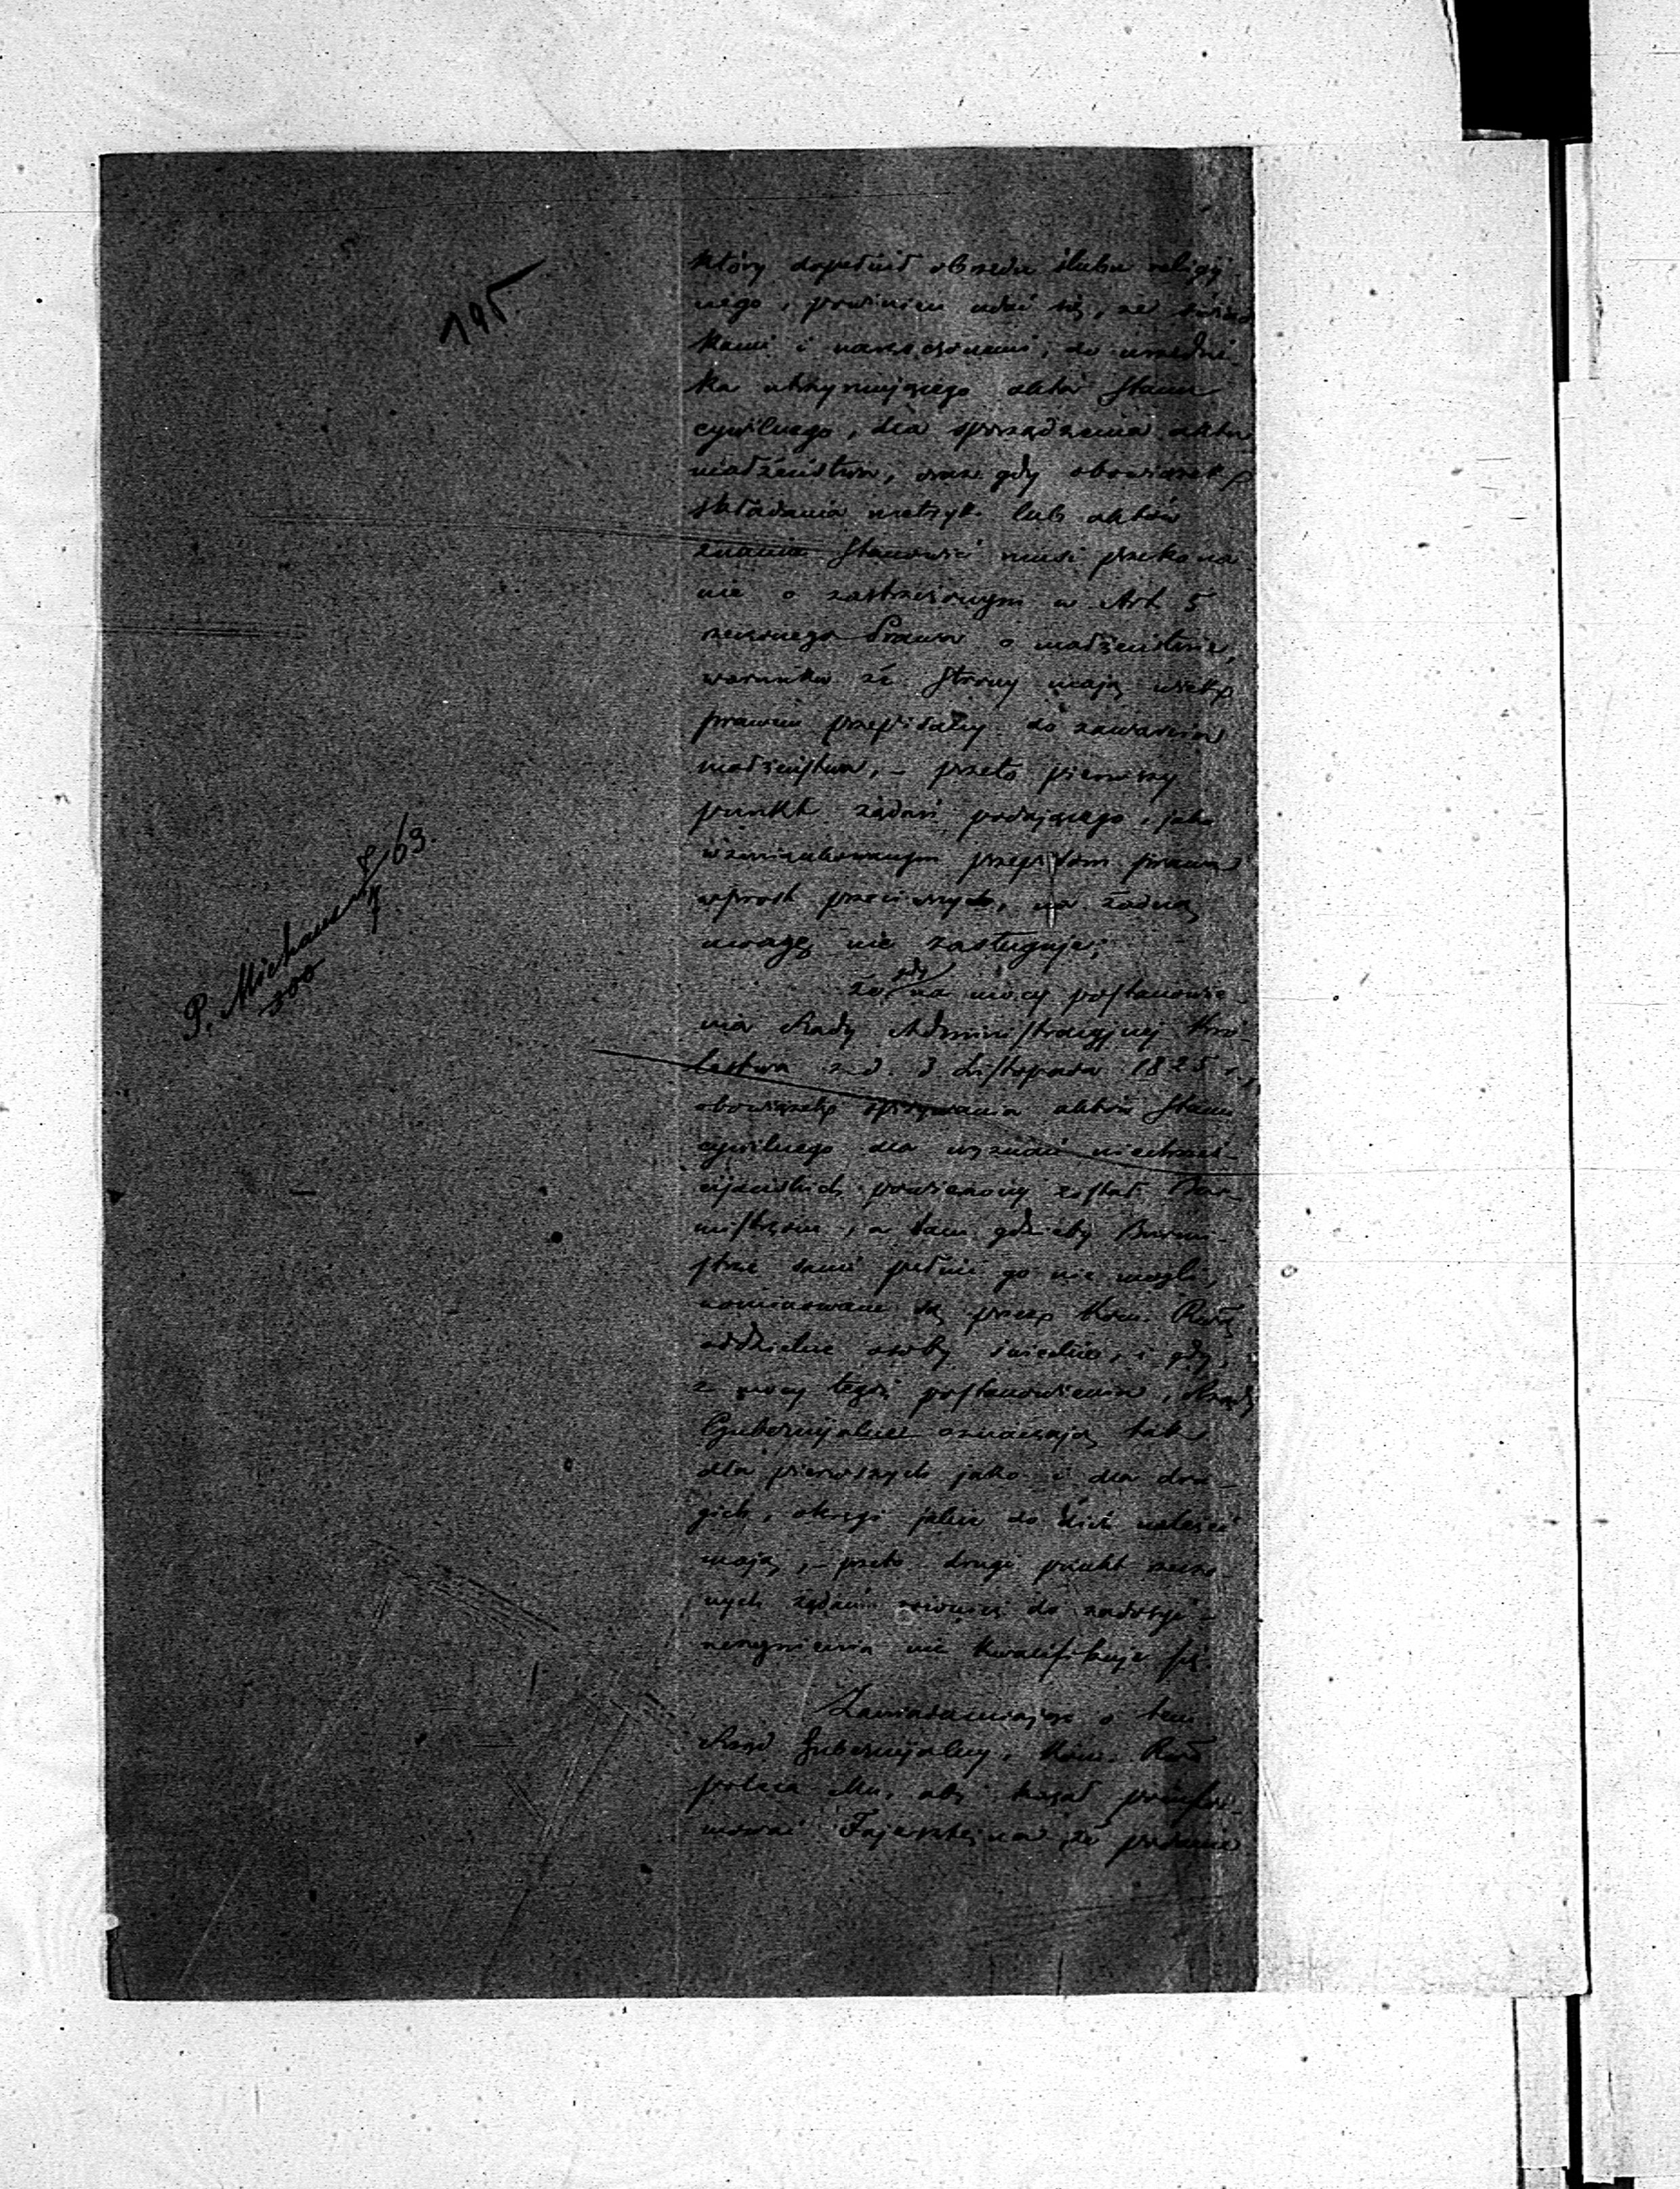 195.
który dopełnił obrzędu ślubu religij-
nego, powinien udać się, ze świad-
kami i narzeczonemi, do urzędni-
ka utrzymującego akta Stanu
cywilnego, dla sporządzenia aktu
małżeństwa, oraz gdy obowiązek
składania metryk lub aktów
znania Stanowić musi przekona-
nie o zastrzeżonym w Art 5
rzeczonego Prawa o małżeństwie,
warunku że Strony mają wiek
prawem przepisany do zawarcia
małżeństwa, – przeto pierwszy
punkt żądań podającego, jako
wzmiankowanym przepisom prawa
wprost przeciwnych, na żadną
uwagę nie zasługuje;
że gdy na mocy postanowie-
nia Rady Administracyjnej Kró-
lestwa z d. 3 Listopada 1825 r.,
obowiązek spisywania aktów Stanu
cywilnego dla wyznań niechrześ-
cijańskich powierzony został Bur-
mistrzom, a tam gdzieby Burmi-
strze sami pełnić go nie mogli,
nominowane są przez Kom. Rząd
oddzielne osoby świeckie, i gdy,
z mocy tegoż postanowienia, Rządy
Gubernijalne oznaczają tak
dla pierwszych jako i dla dru-
gich, okręgi jakie do nich należeć
mają, – przeto drugi punkt rzeczo-
nych żądań również do zadosyć-
uczynienia nie kwalifikuje się.
Zawiadamiając o tem
Rząd Gubernijalny, Kom. Rząd
poleca Mu, aby kazał poinfor-
mować Fajersztejna, że podanie
P. Michaux 63.
300